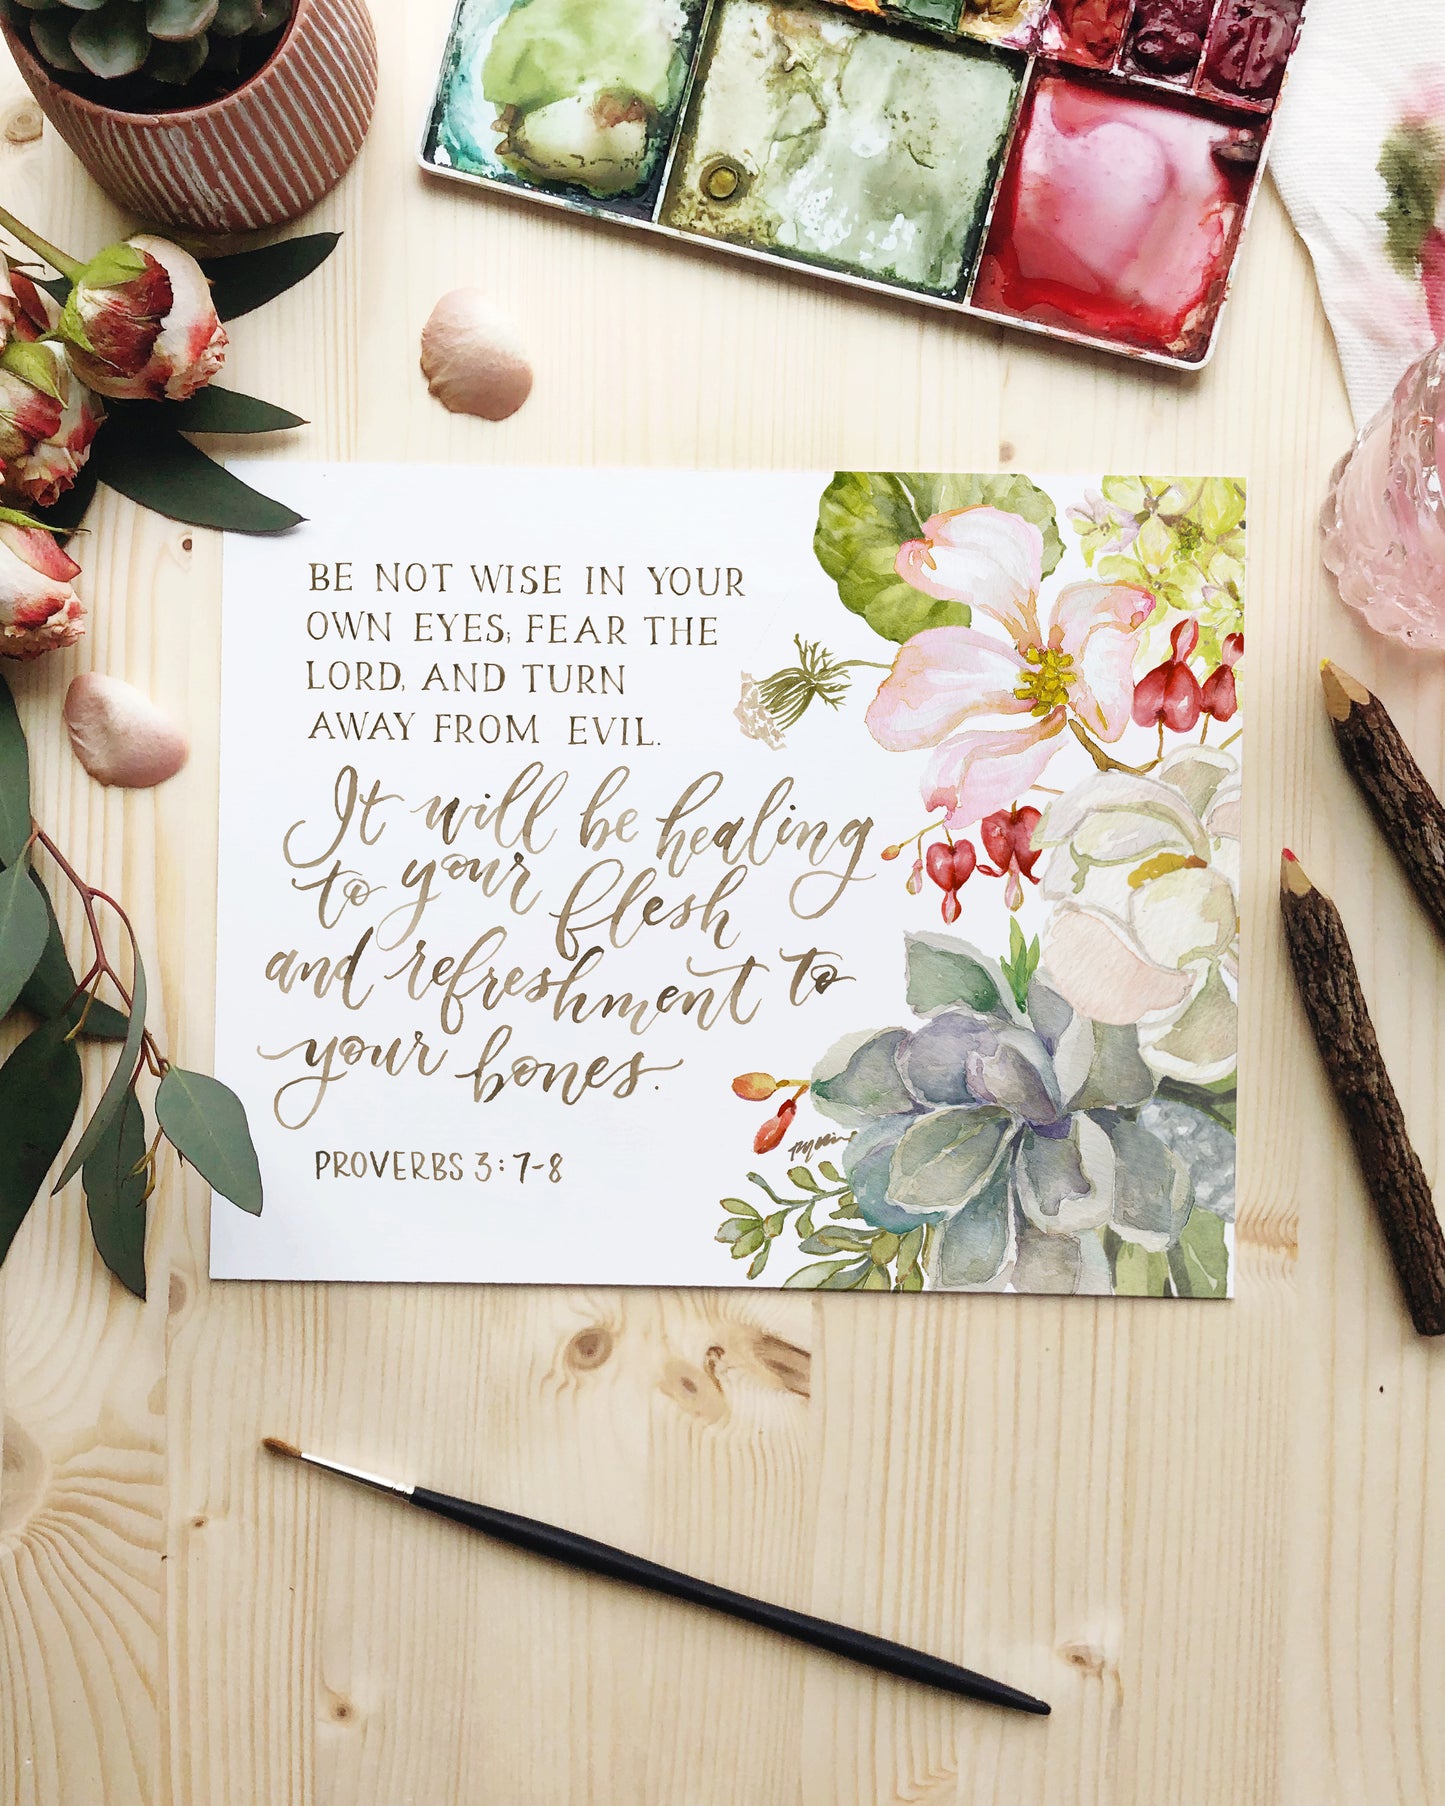 BE NOT WISE IN YOUR
OWN EYES; FEAR THE
LORD, AND TURN
AWAY FROM EVIL.
It will be healing
to your flesh
and refreshment to
your bones.
PROVERBS 3:7-8